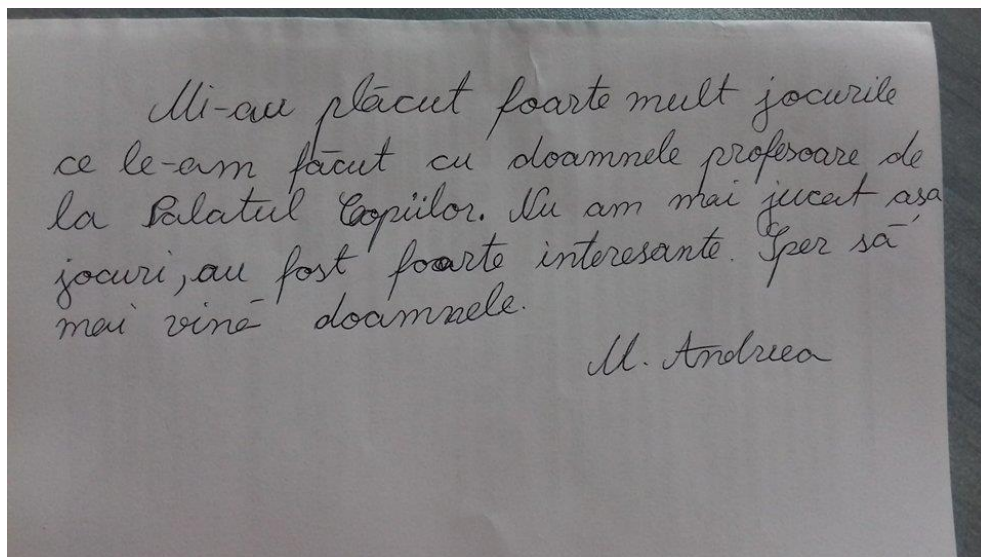 Mi-au plăcut foarte mult jocurile
ce le-am făcut cu doamnele profesoare de
la Palatul Copiilor. Nu am mai jucat așa
jocuri, au fost foarte interesante. Sper să
mai vină doamnele.
M. Andreea